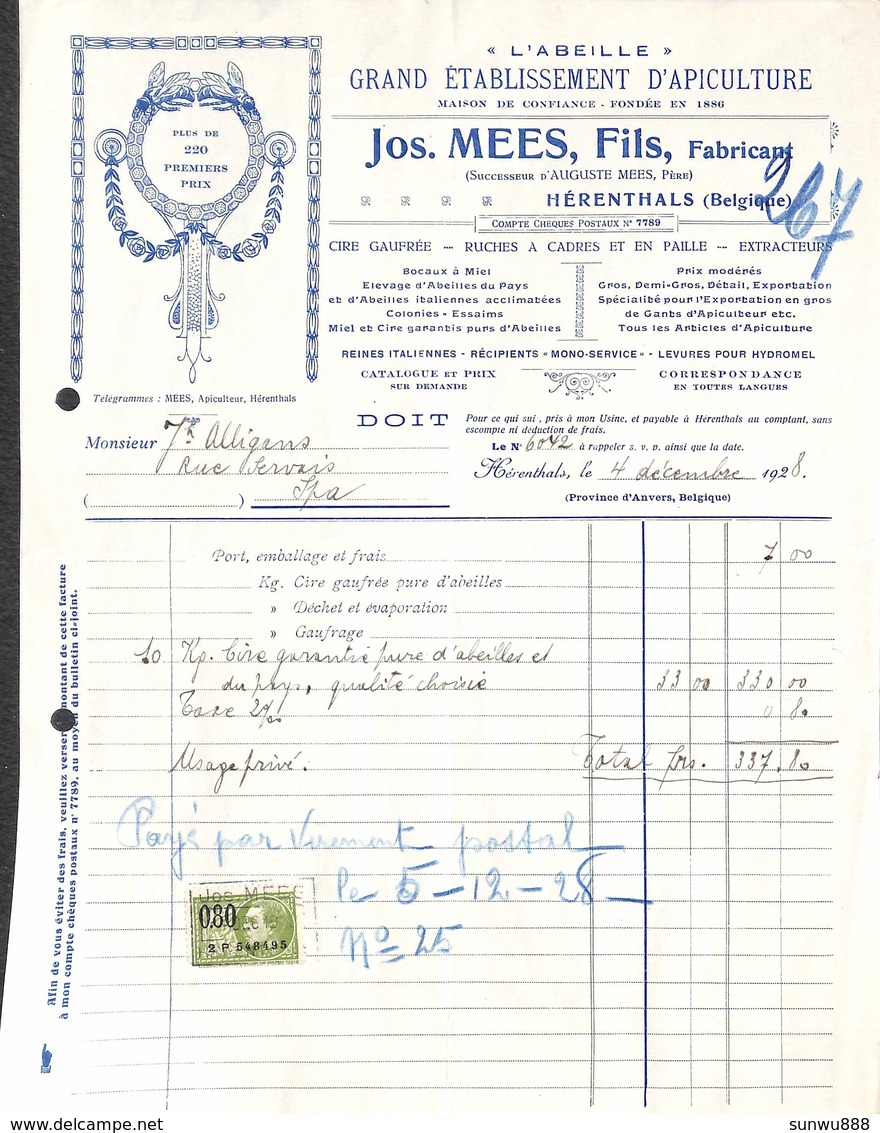 « L'ABEILLE »
GRAND ÉTABLISSEMENT D'APICULTURE
MAISON DE CONFIANCE - FONDÉE EN 1886
PLUS DE
220
PREMIERS
PRIX
Jos. MEES, Fils, Fabricant
(SUCCESSEUR D'AUGUSTE MEES, PÈRE)
HÉRENTHALS (Belgique)
267
COMPTE CHÈQUES POSTAUX N° 7789
CIRE GAUFRÉE — RUCHES A CADRES ET EN PAILLE — EXTRACTEURS
Bocaux à Miel
Elevage d'Abeilles du Pays
et d'Abeilles italiennes acclimatées
Colonies - Essaims
Miel et Cire garantis purs d'Abeilles
Prix modérés
Gros, Demi-Gros, Détail, Exportation
Spécialité pour l'Exportation en gros
de Gants d'Apiculteur etc.
Tous les Articles d'Apiculture
REINES ITALIENNES - RÉCIPIENTS «MONO-SERVICE» - LEVURES POUR HYDROMEL
CATALOGUE ET PRIX
SUR DEMANDE
CORRESPONDANCE
EN TOUTES LANGUES
Télégrammes : MEES, Apiculteur, Hérenthals
DOIT
Pour ce qui sui , pris à mon Usine, et payable à Hérenthals au comptant, sans
escompte ni déduction de frais.
Monsieur Alligans
Rue Servais
Spa
( )
Le N° 6042 à rappeler s. v. p. ainsi que la date.
Hérenthals, le 4 décembre 1928.
(Province d'Anvers, Belgique)
Port, emballage et frais 7 00
Kg. Cire gaufrée pure d'abeilles
» Déchet et évaporation
» Gaufrage
10 Kg. Cire garantie pure d'abeilles et
du pays, qualité choisie 33 00 330 00
Taxe 0 80
Usage privé. Total frs. 337.80
Payé par virement postal
le 5-12-28
N° 25
Jos. MEES
0.80
2 P 548495
Afin de vous éviter des frais, veuillez verser le montant de cette facture
à mon compte chèques postaux n° 7789, au moyen du bulletin ci-joint.
sunwu888